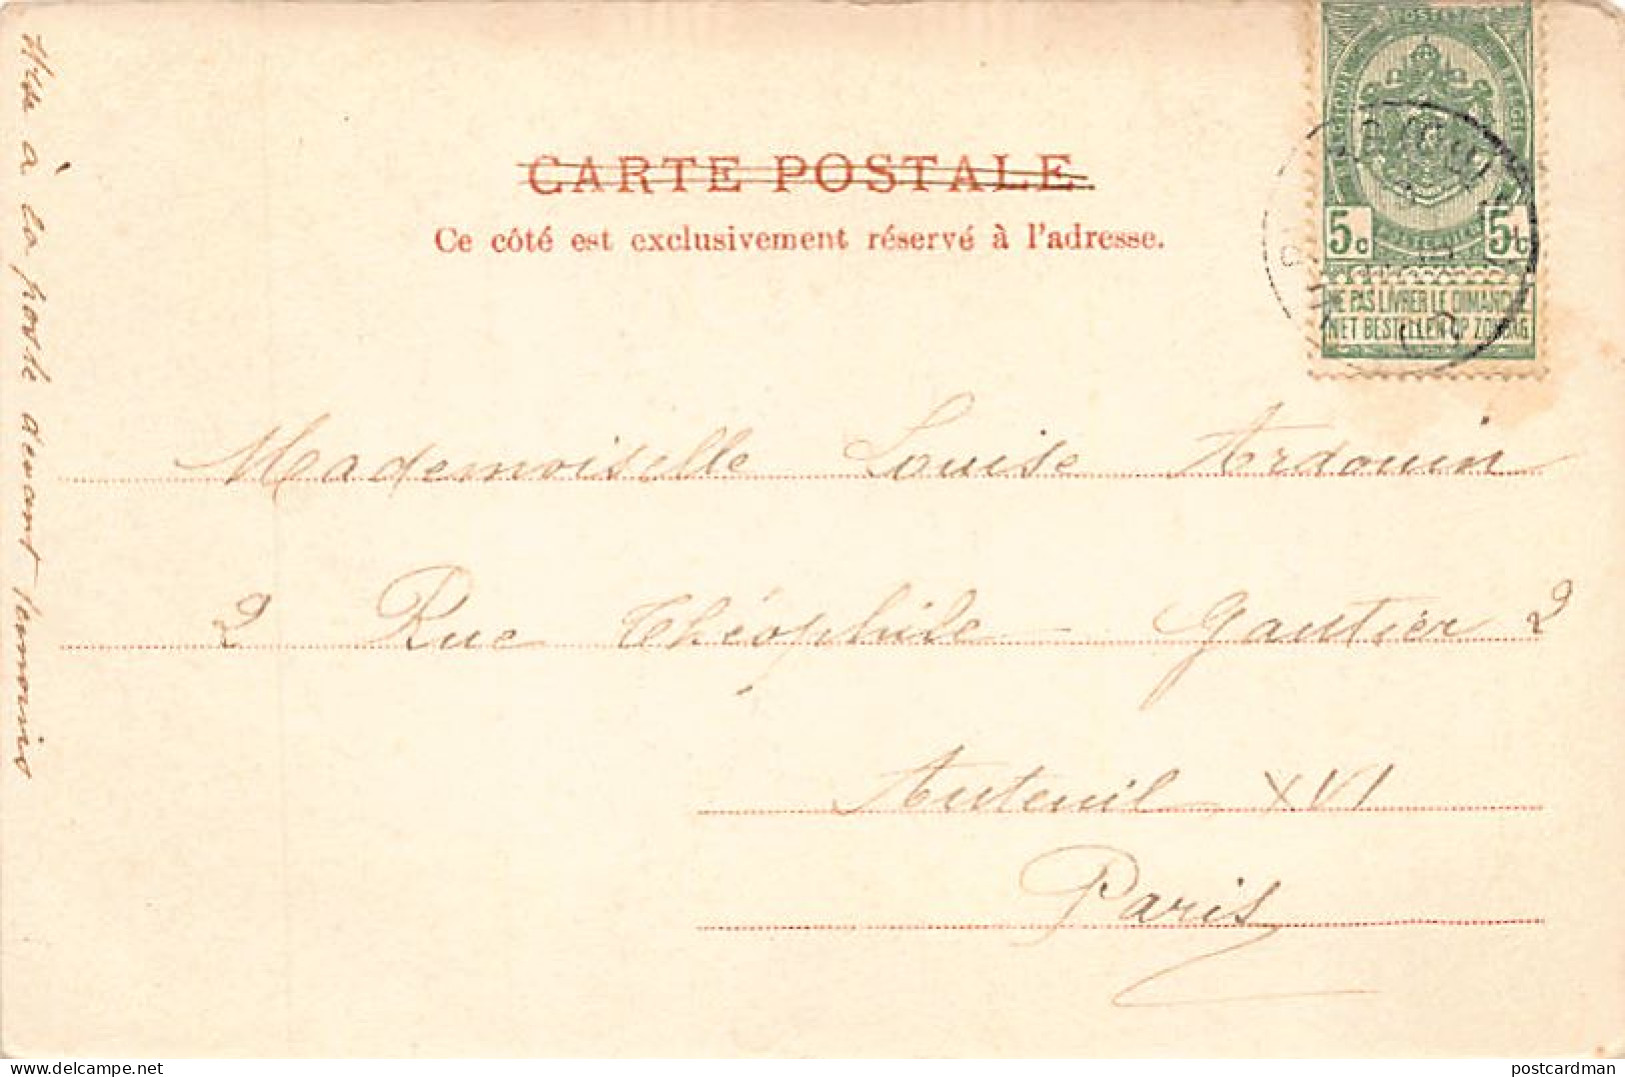 CARTE POSTALE
Ce côté est exclusivement réservé à l'adresse.
POSTES
BELGIQUE
BELGIË
5c 5c
NE PAS LIVRER LE DIMANCHE
NIET BESTELLEN OP ZONDAG
Mademoiselle Louise Ardouin
2 Rue Théophile - Gautier 2
Auteuil XVI
Paris
Mise à la poste devant témoins
postcardman